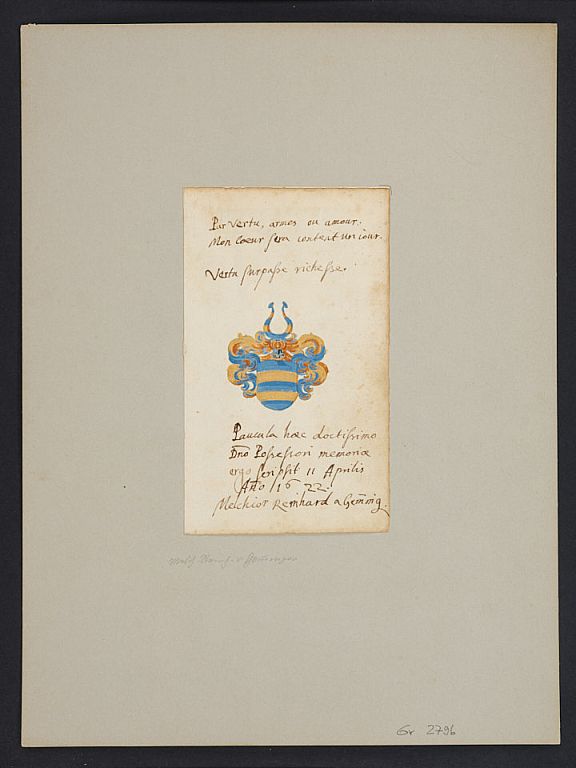 Par Vertu, armes ou amour.
Mon Coeur sera content un iour.
Vertu surpasse richesse.
Paucula haec doctissimo
Dno Possessori memoriae
ergo scripsit 11 Aprilis
Año 1622.
Melchior Reinhard a Gem̃ing.
Gr 2796